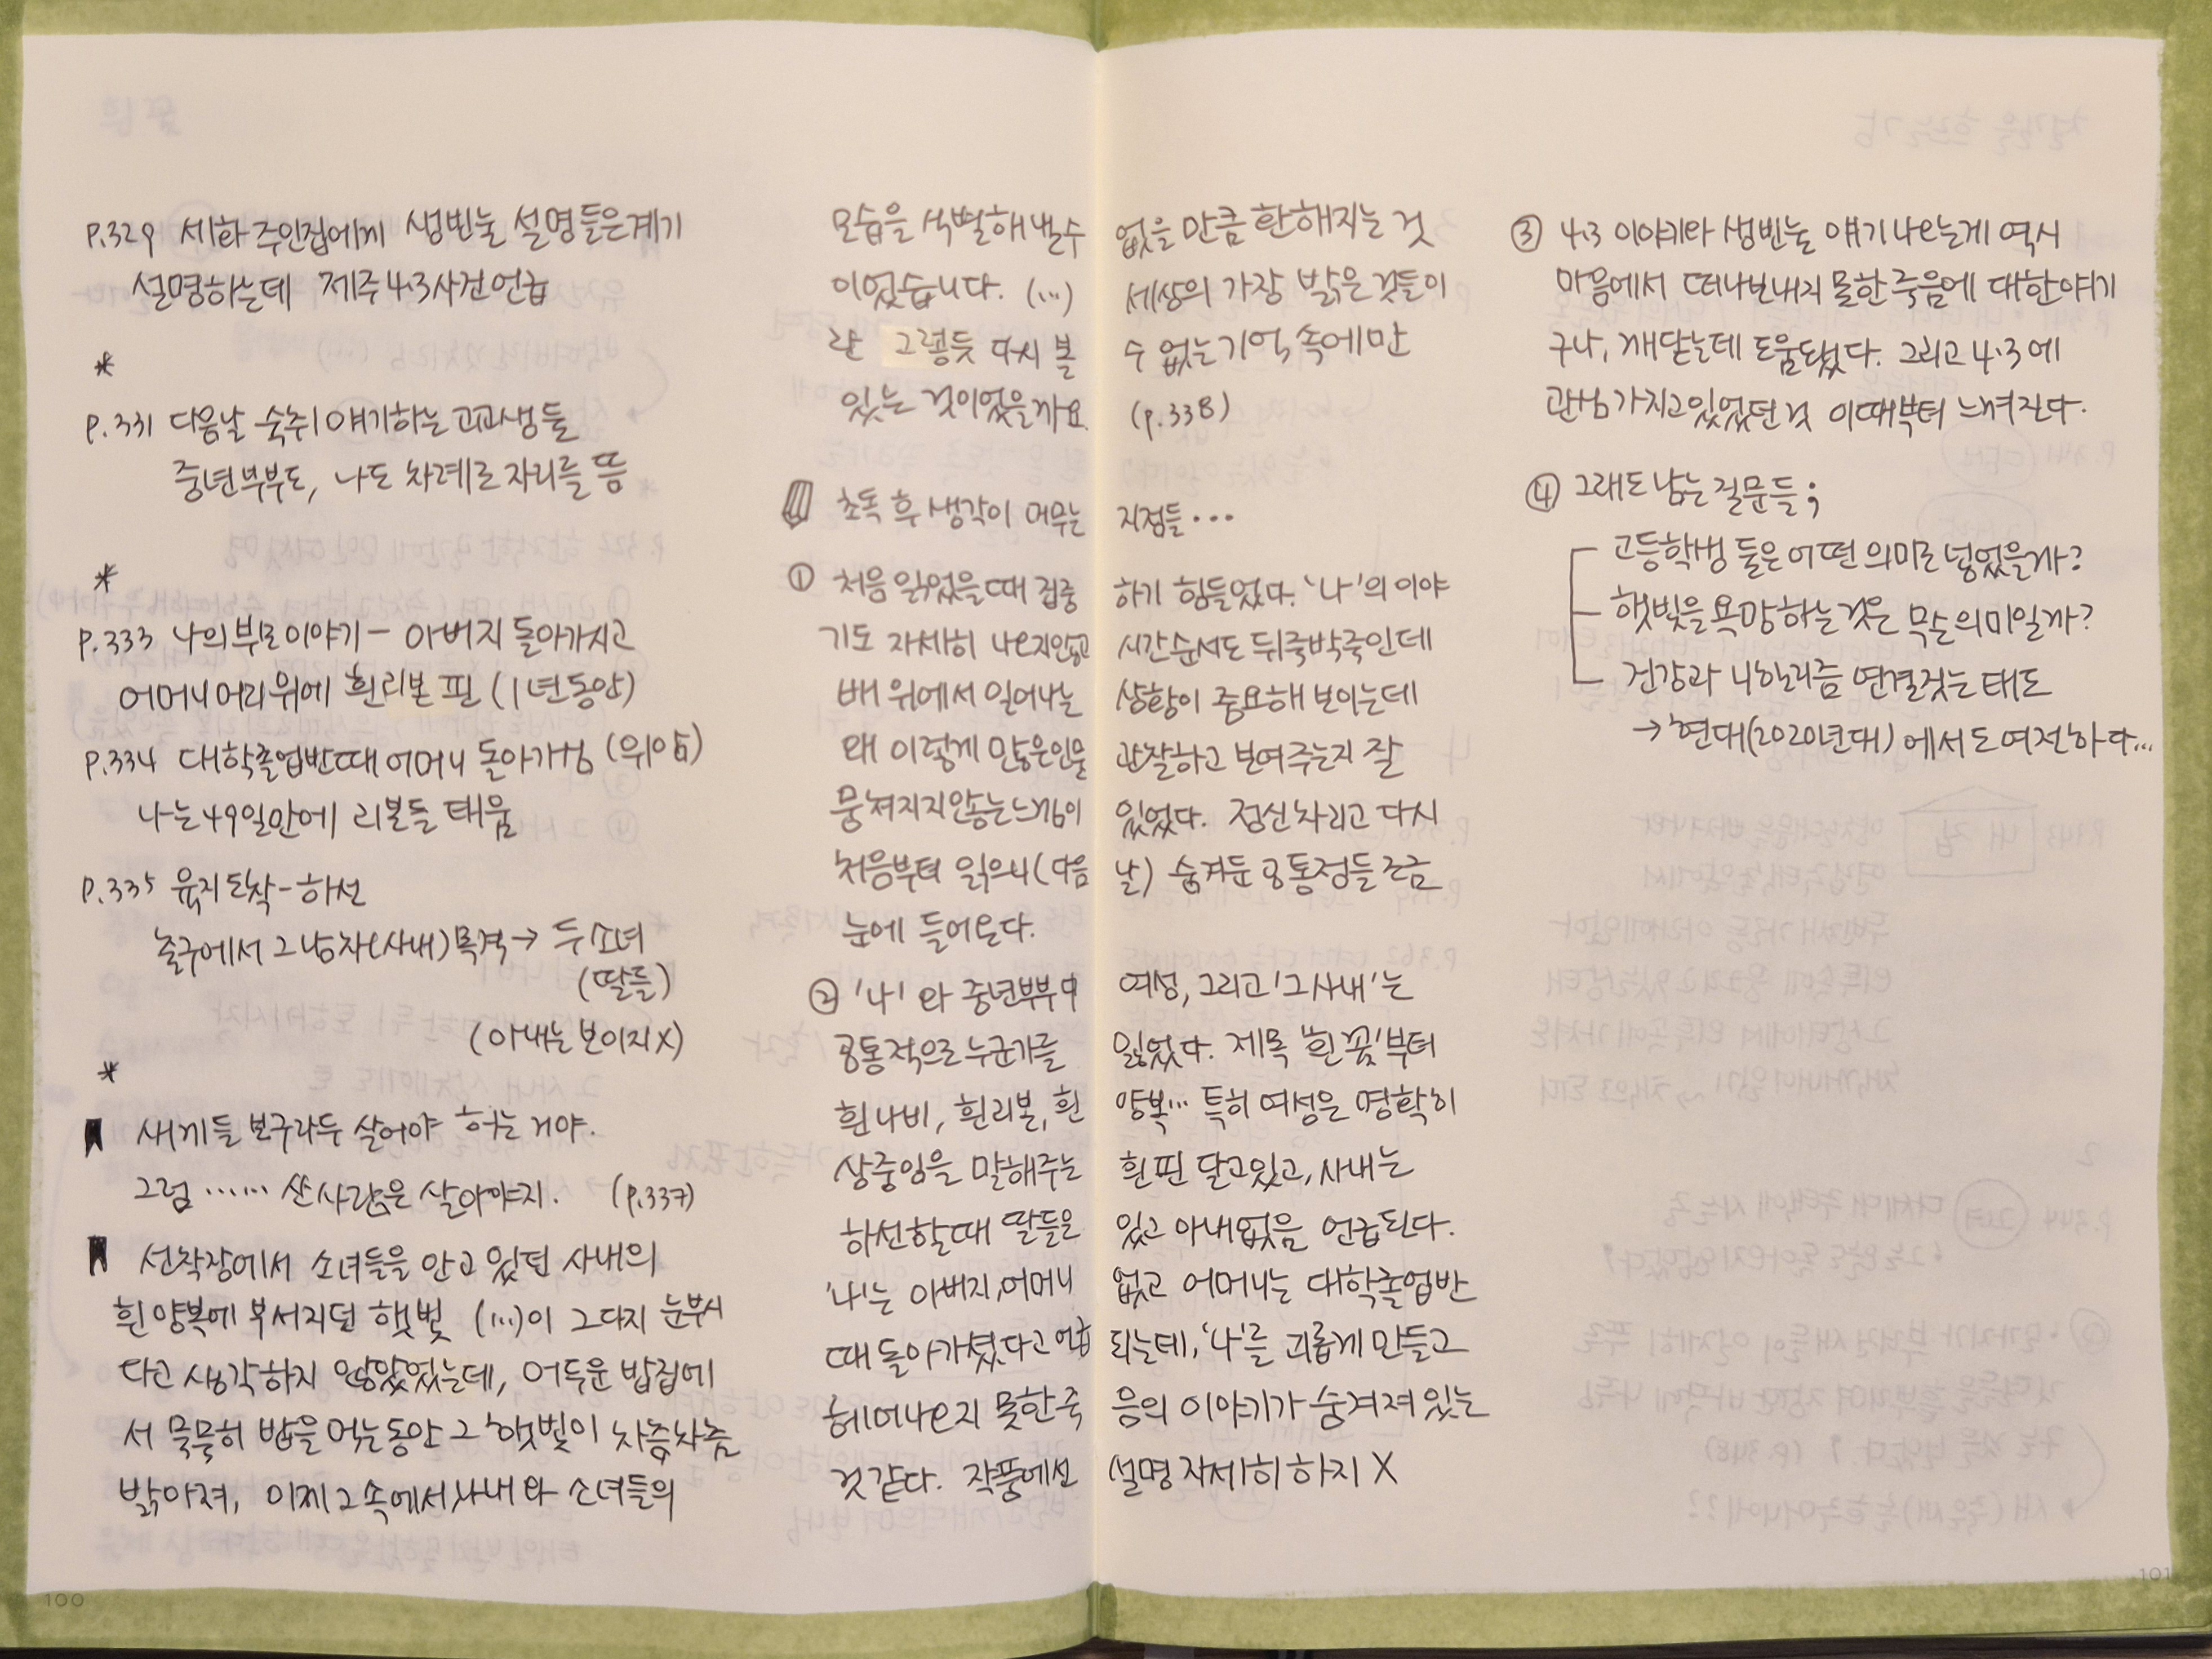 P.329 세화 주인집에게 생빈눌 설명 들은 계기
설명하는데 제주 4.3사건 언급
*
P.331 다음날 숙취 얘기하는 고교생들
중년부부도, 나도 차례로 자리를 뜸
*
P.333 나의 부모 이야기 - 아버지 돌아가시고
어머니 머리 위에 흰 리본 핀 (1년동안)
P.334 대학졸업반때 어머니 돌아가심 (위암)
나는 49일만에 리본들 태움
P.335 육지 도착 - 하선
출구에서 그 남자(사내) 목격 → 두 소녀
(딸들)
(아내는 보이지 X)
*
새끼들 보구라두 살어야 하는 거야.
그럼 …… 산 사람은 살아야지. (p.337)
선착장에서 소녀들을 안고 있던 사내의
흰 양복에 부서지던 햇빛 (…)이 그다지 눈부시
다고 생각하지 않았었는데, 어두운 밥집에
서 묵묵히 밥을 먹는 동안 그 햇빛이 차츰차츰
밝아져, 이제 그 속에서 사내와 소녀들의
모습을 식별해 낼 수 없을 만큼 환해지는 것
이었습니다. (…) 세상의 가장 밝은 것들이
란 그렇듯 다시 볼 수 없는 기억 속에만
있는 것이었을까요. (p.338)
초독 후 생각이 머무는 지점들…
① 처음 읽었을 때 집중하기 힘들었다. '나'의 이야
기도 자세히 나오지 않고 시간순서도 뒤죽박죽인데
배 위에서 일어나는 상황이 중요해 보이는데
왜 이렇게 많은 인물 관찰하고 보여주는지 잘
뭉쳐지지 않는 느낌이 있었다. 정신차리고 다시
처음부터 읽으니(다음날) 숨겨둔 공통점들 조금
눈에 들어온다.
② '나'와 중년부부 中 여성, 그리고 '그 사내'는
공통적으로 누군가를 잃었다. 제목 '흰 꽃'부터
흰 나비, 흰 리본, 흰 양복… 특히 여성은 명확히
상중임을 말해주는 흰 핀 달고 있고, 사내는
하선할 때 딸들은 있고 아내 없음 언급된다.
'나'는 아버지, 어머니 없고 어머니는 대학졸업반
때 돌아가셨다고 언급되는데, '나'를 괴롭게 만들고
헤어나오지 못한 죽음의 이야기가 숨겨져 있는
것 같다. 작품에선 설명 자세히 하지 X
③ 4.3 이야기와 생빈눌 얘기 나오는게 역시
마음에서 떠나보내지 못한 죽음에 대한 얘기
구나, 깨닫는데 도움됐다. 그리고 4.3에
관심 가지고 있었던 것 이때부터 느껴진다.
④ 그래도 남는 질문들;
고등학생들은 어떤 의미로 넣었을까?
햇빛을 욕망하는 것은 무슨 의미일까?
건강과 니힐리즘 연결짓는 태도
→ 현대(2020년대)에서도 여전하다…
100
101